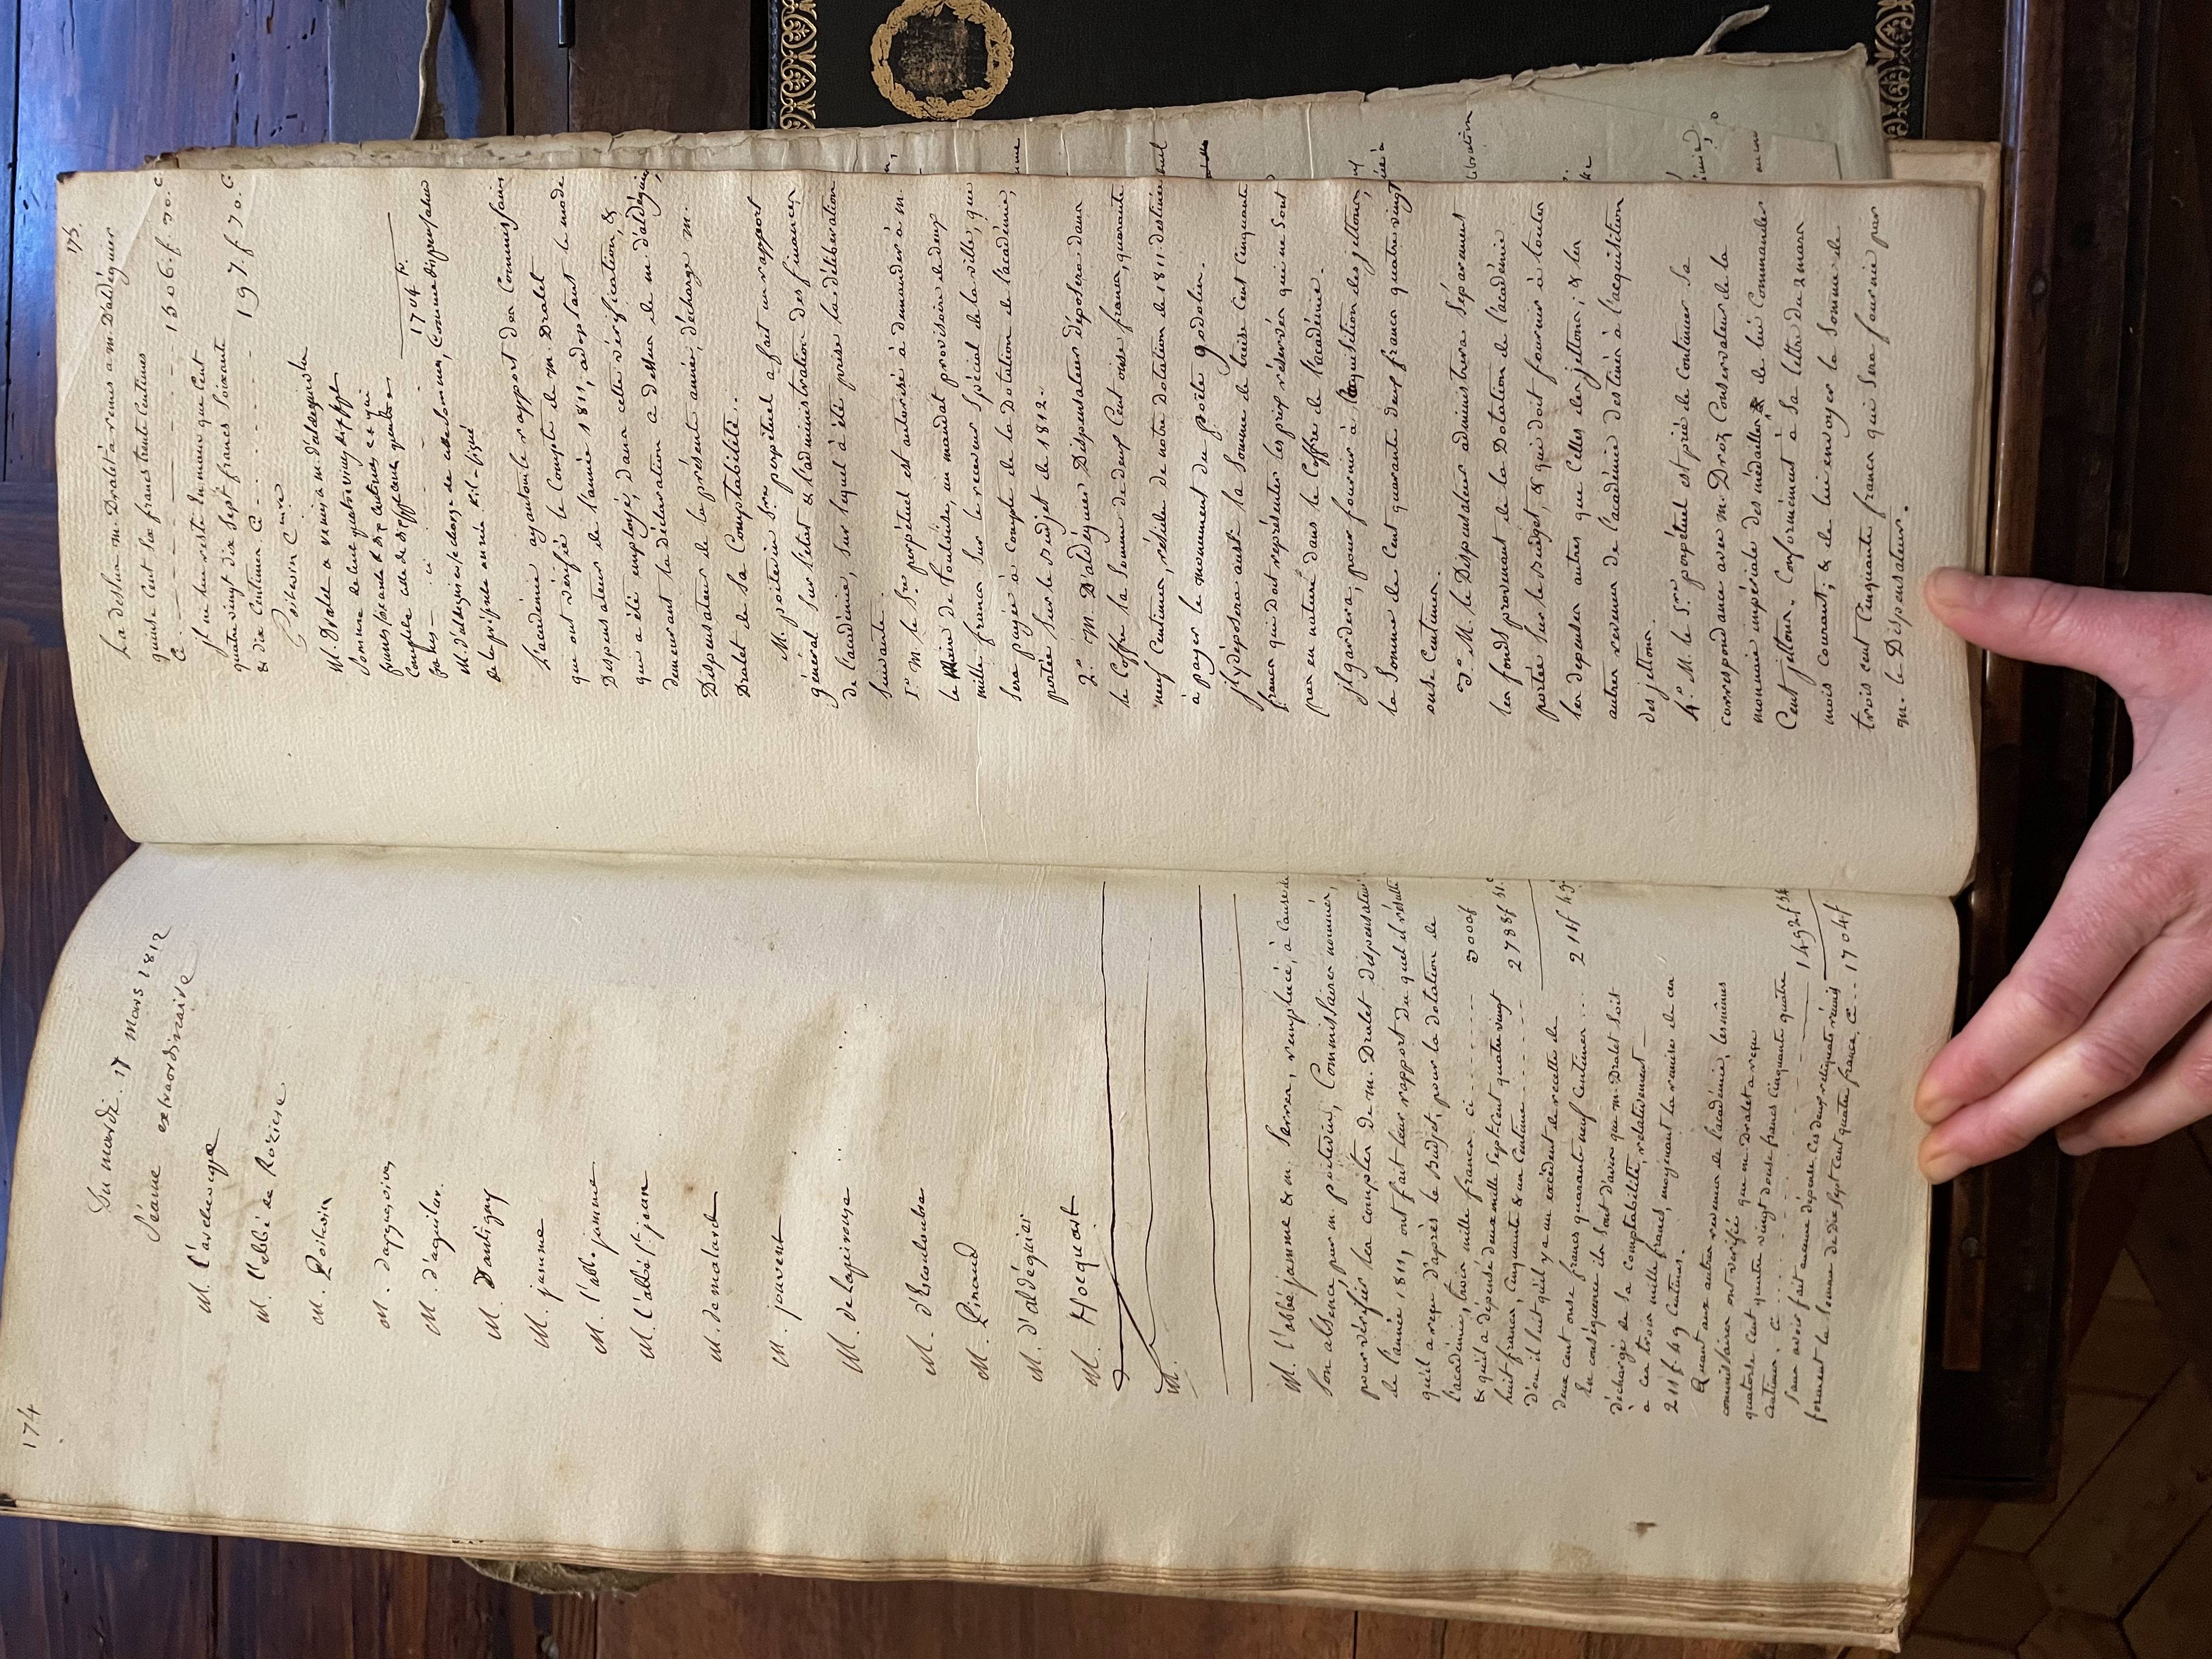 174
Du mardi. 17 mars 1812
Séance extraordinaire
M. l'archevêque
M. l'abbé de Rozieres
M. Poitevin
M. d'agguevives
M. d'aguilar.
M. Dantigny
M. jamme
M. l'abbé jamme
M. l'abbé st. jean
M. de malard
M. jouvent
M. de lapeirouse
M. d'Escouloubre
M. Pinaud
M. d'aldéguier
M. Hocquart
M.
M. l'abbé jamme & m. Serres, remplacé, à cause de
son absence, par m. poitevin, Commissaires nommés,
pour vérifier les comptes de m. Dralet dispensateur
de l'année 1811, ont fait leur rapport du quel il résulte
qu'il a reçu d'après le Budjet, pour la dotation de
l'académie, trois mille francs. ci . . . . . . . 3000f
& qu'il a dépensé deux mille sept cent quatre vingt
huit francs, Cinquante & un Centimes . . . . . 2788f 51.c
d'où il suit qu'il y a un excédent de recette de
deux cent onse francs quarante neuf Centimes . . . 211f 49c
En conséquence ils sont d'avis que m. Dralet soit
déchargé de sa comptabilité, relativement
à ces trois mille francs, moyenant la remise de ces
211f. 49 Centimes.
Quant aux autres revenus de l'académie, les mêmes
commissaires ont vérifié que m. Dralet a reçu
quatorse Cent quatre vingt douse francs Cinquante quatre
Centimes. C . . . . . . 1492f 54
sans avoir fait aucune dépense Ces deux reliquats réunis
forment la somme de dix sept cent quatre francs. C . . . 1704f
175.
La dessus m. Dralet a remis a m. Daldéguier
quinse Cent six francs trente Centimes
C. . . . . . 1506.f. 30.c
il ne lui reste en main que Cent
quatre vingt dix sept francs soixante
& dix Centimes C . . . . . . 197.f 70.c
Poitevin C.aire
M. Dralet a remis a m. d'aldeguier la
somme de cent quatre vingt dix sept
francs soixante & dix Centimes ce qui
Complete celle de dix sept cent quatre
francs — ci . . . . . 1704 f.
M. d'aldeguier se charge de cette somme, Comme dispensateur
de la présente année. Ril - signé
L'académie ayant ouï le rapport des Commissaires
qui ont vérifié le Compte de m. Dralet
Dispensateur de l'année 1811, adoptant le mode
qui a été employé, dans cette vérification, &
demeurant la déclaration ci dessus de m. d'aldéguier,
Dispensateur de la présente année, décharge m.
Dralet de sa Comptabilité.
M. poitevin S.re perpétuel a fait un rapport
général sur l'état & l'administration des finances
de l'académie, sur lequel a été prise la délibération
suivante.
1.º M. le S.re perpétuel est autorisé à demander à m.
le Maire de Toulouse, un mandat provisoire de deux
mille francs sur le receveur spécial de la ville, que
sera payée à compte de la Dotation de l'académie,
portée sur le Budjet de 1812.
2.º M. D'aldéguier Dispensateur déposera dans
le Coffre la Somme de deux Cent onse francs, quarante
neuf Centimes, résidu de notre dotation de 1811. destinée
à payer le monument du poëte godolin.
il y déposera aussi la somme de treise Cent Cinquante
francs qui doit représenter les prix réservés qui ne sont
pas en nature dans le Coffre de l'académie.
il gardera, pour fournir à l'acquisition des jettons,
la Somme de Cent quarante deux francs quatre vingt
onse Centimes.
3.º M. le Dispensateur administrera séparément
les fonds provenant de la Dotation de l'académie
portée sur le Budget, & qui doit fournir à toutes
les depenses autres que Celles des jettons; & les
autres revenus de l'académie destinés à l'acquisition
des jettons.
4.º M. le S.re perpétuel est prié de Continuer sa
correspondance avec m. Droz Conservateur de la
monnaie impériale des médailles, & de lui Commander
Cent jettons. Conformément à sa lettre du 2 mars
mois courant; & de lui envoyer la Somme de
trois cent Cinquante francs qui sera fournie par
m. le Dispensateur.